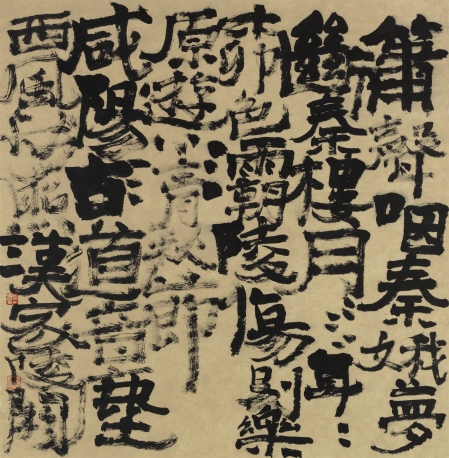 簫聲咽秦娥夢
斷秦樓月:::年:
柳色霸陵傷別樂
原遊上清秋節
咸陽古道音塵
西風殘照漢家陵闕